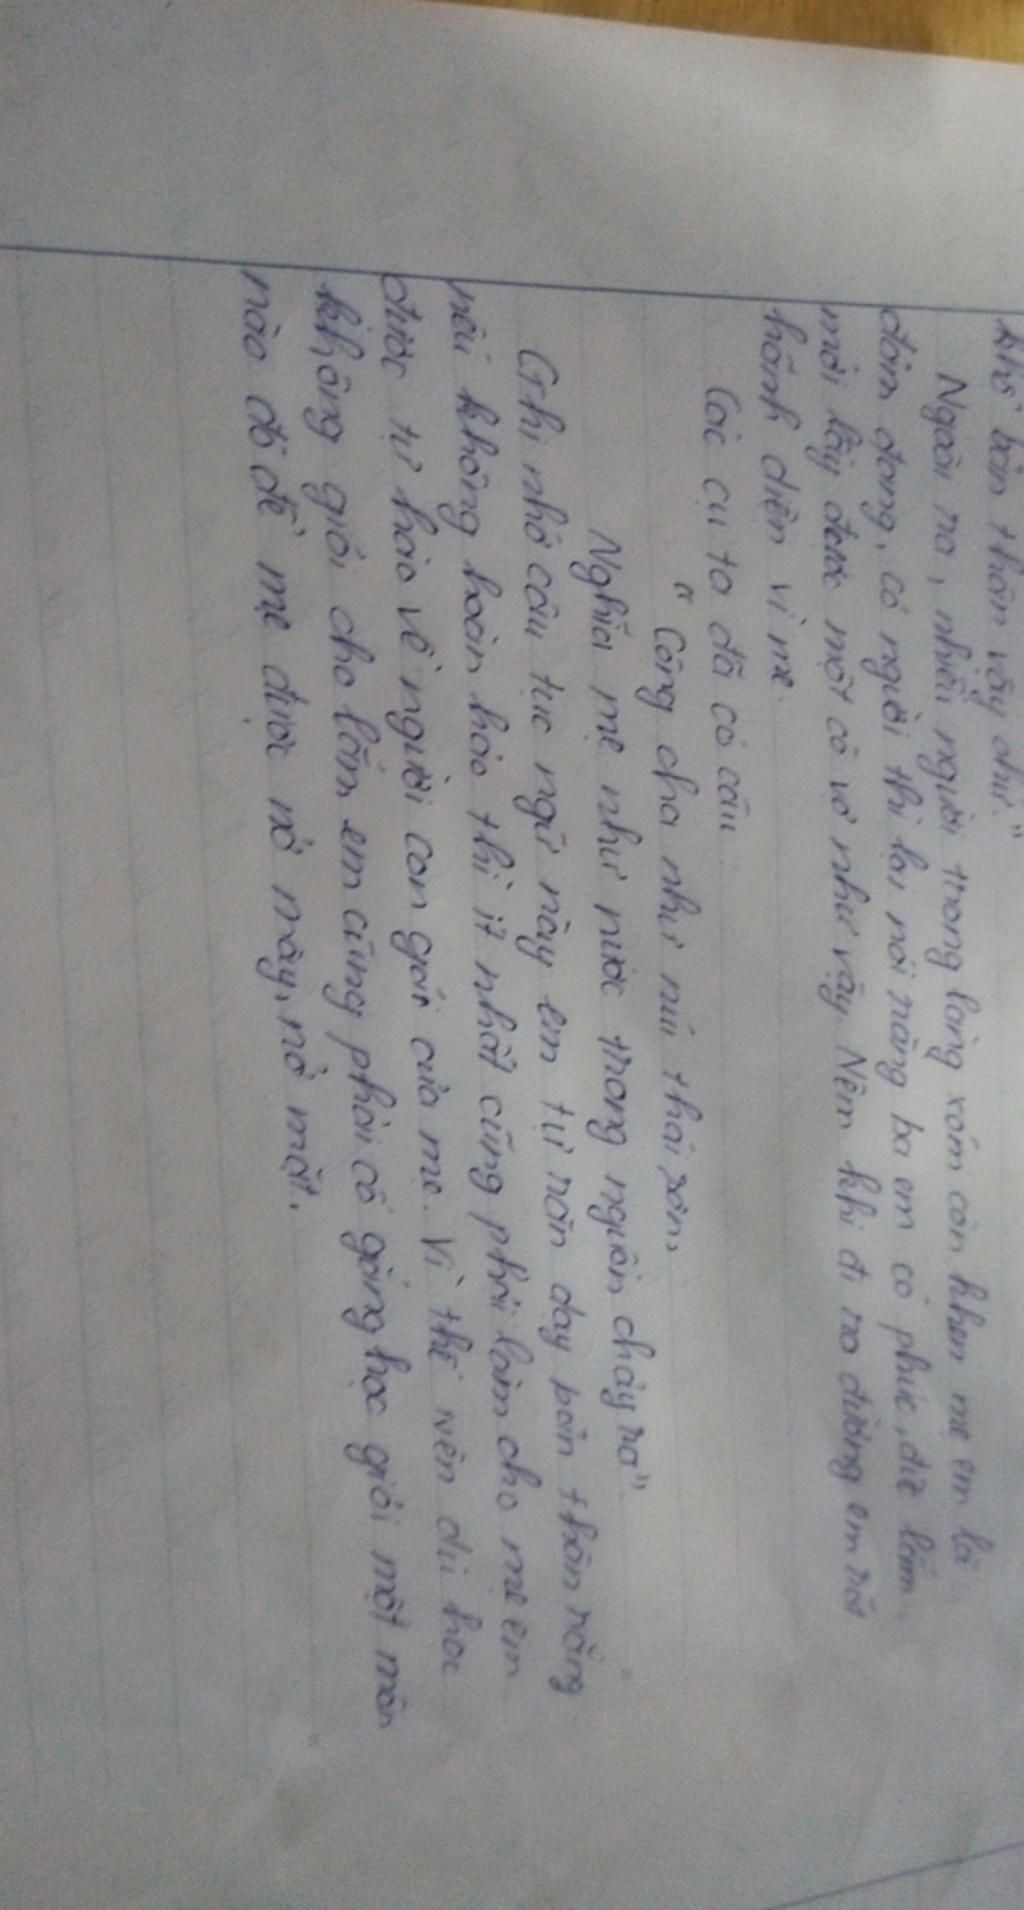 khi bản thân vậy chứ."
Ngoài ra, nhiều người trong làng xóm còn khen mẹ em là
đảm đang, có người thì lại nói rằng ba em có phúc, đức lắm
mới lấy được một cô vợ như vậy. Nêm khi đi ra đường em rất
hãnh diện vì mẹ.
Các cụ ta đã có câu
" Công cha như núi thái sơn,
Nghĩa mẹ như nước trong nguồn chảy ra"
Ghi nhớ câu tục ngữ này em tự răn dạy bản thân rằng
nếu không hoàn hảo thì ít nhất cũng phải làm cho mẹ em
được tự hào về người con gái của mẹ. Vì thế nên dù học
không giỏi cho lắm, em cũng phải cố gắng học giỏi một môn
nào đó để mẹ được nở mày, nở mặt.